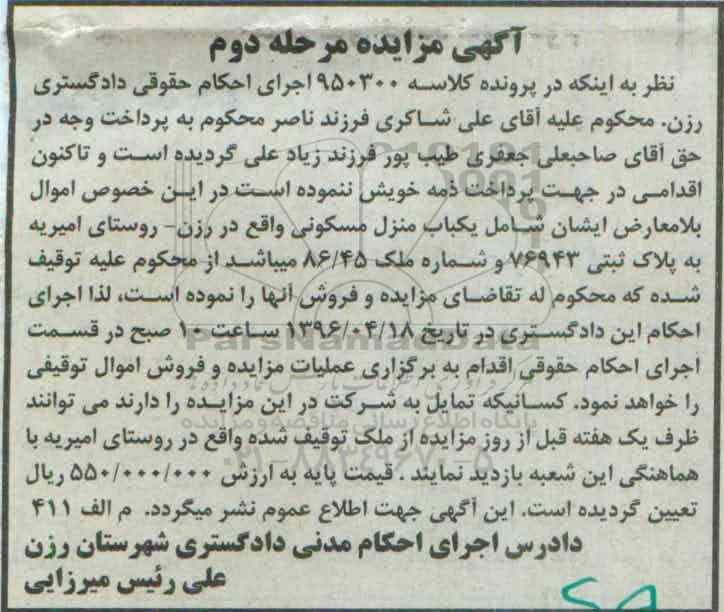 آگهی مزایده مرحله دوم
نظر به اینکه در پرونده کلاسه ۹۵۰۳۰۰ اجرای احکام حقوقی دادگستری
رزن. محکوم علیه آقای علی شاکری فرزند ناصر محکوم به پرداخت وجه در
حق آقای صاحبعلی جعفری طیب پور فرزند زیاد علی گردیده است و تاکنون
اقدامی در جهت پرداخت ذمه خویش ننموده است در این خصوص اموال
بلامعارض ایشان شامل یکباب منزل مسکونی واقع در رزن- روستای امیریه
به پلاک ثبتی ۷۶۹۴۳ و شماره ملک ۸۶/۴۵ میباشد از محکوم علیه توقیف
شده که محکوم له تقاضای مزایده و فروش آنها را نموده است، لذا اجرای
احکام این دادگستری در تاریخ ۱۳۹۶/۰۴/۱۸ ساعت ۱۰ صبح در قسمت
اجرای احکام حقوقی اقدام به برگزاری عملیات مزایده و فروش اموال توقیفی
را خواهد نمود. کسانیکه تمایل به شرکت در این مزایده را دارند می توانند
ظرف یک هفته قبل از روز مزایده از ملک توقیف شده واقع در روستای امیریه با
هماهنگی این شعبه بازدید نمایند . قیمت پایه به ارزش ۵۵۰/۰۰۰/۰۰۰ ریال
تعیین گردیده است. این آگهی جهت اطلاع عموم نشر میگردد. م الف ۴۱۱
دادرس اجرای احکام مدنی دادگستری شهرستان رزن
علی رئیس میرزایی
ParsNamadData
پایگاه اطلاع رسانی مناقصه و مزایده
۰۲۱-۸۸۳۴۹۶۷۰-۵